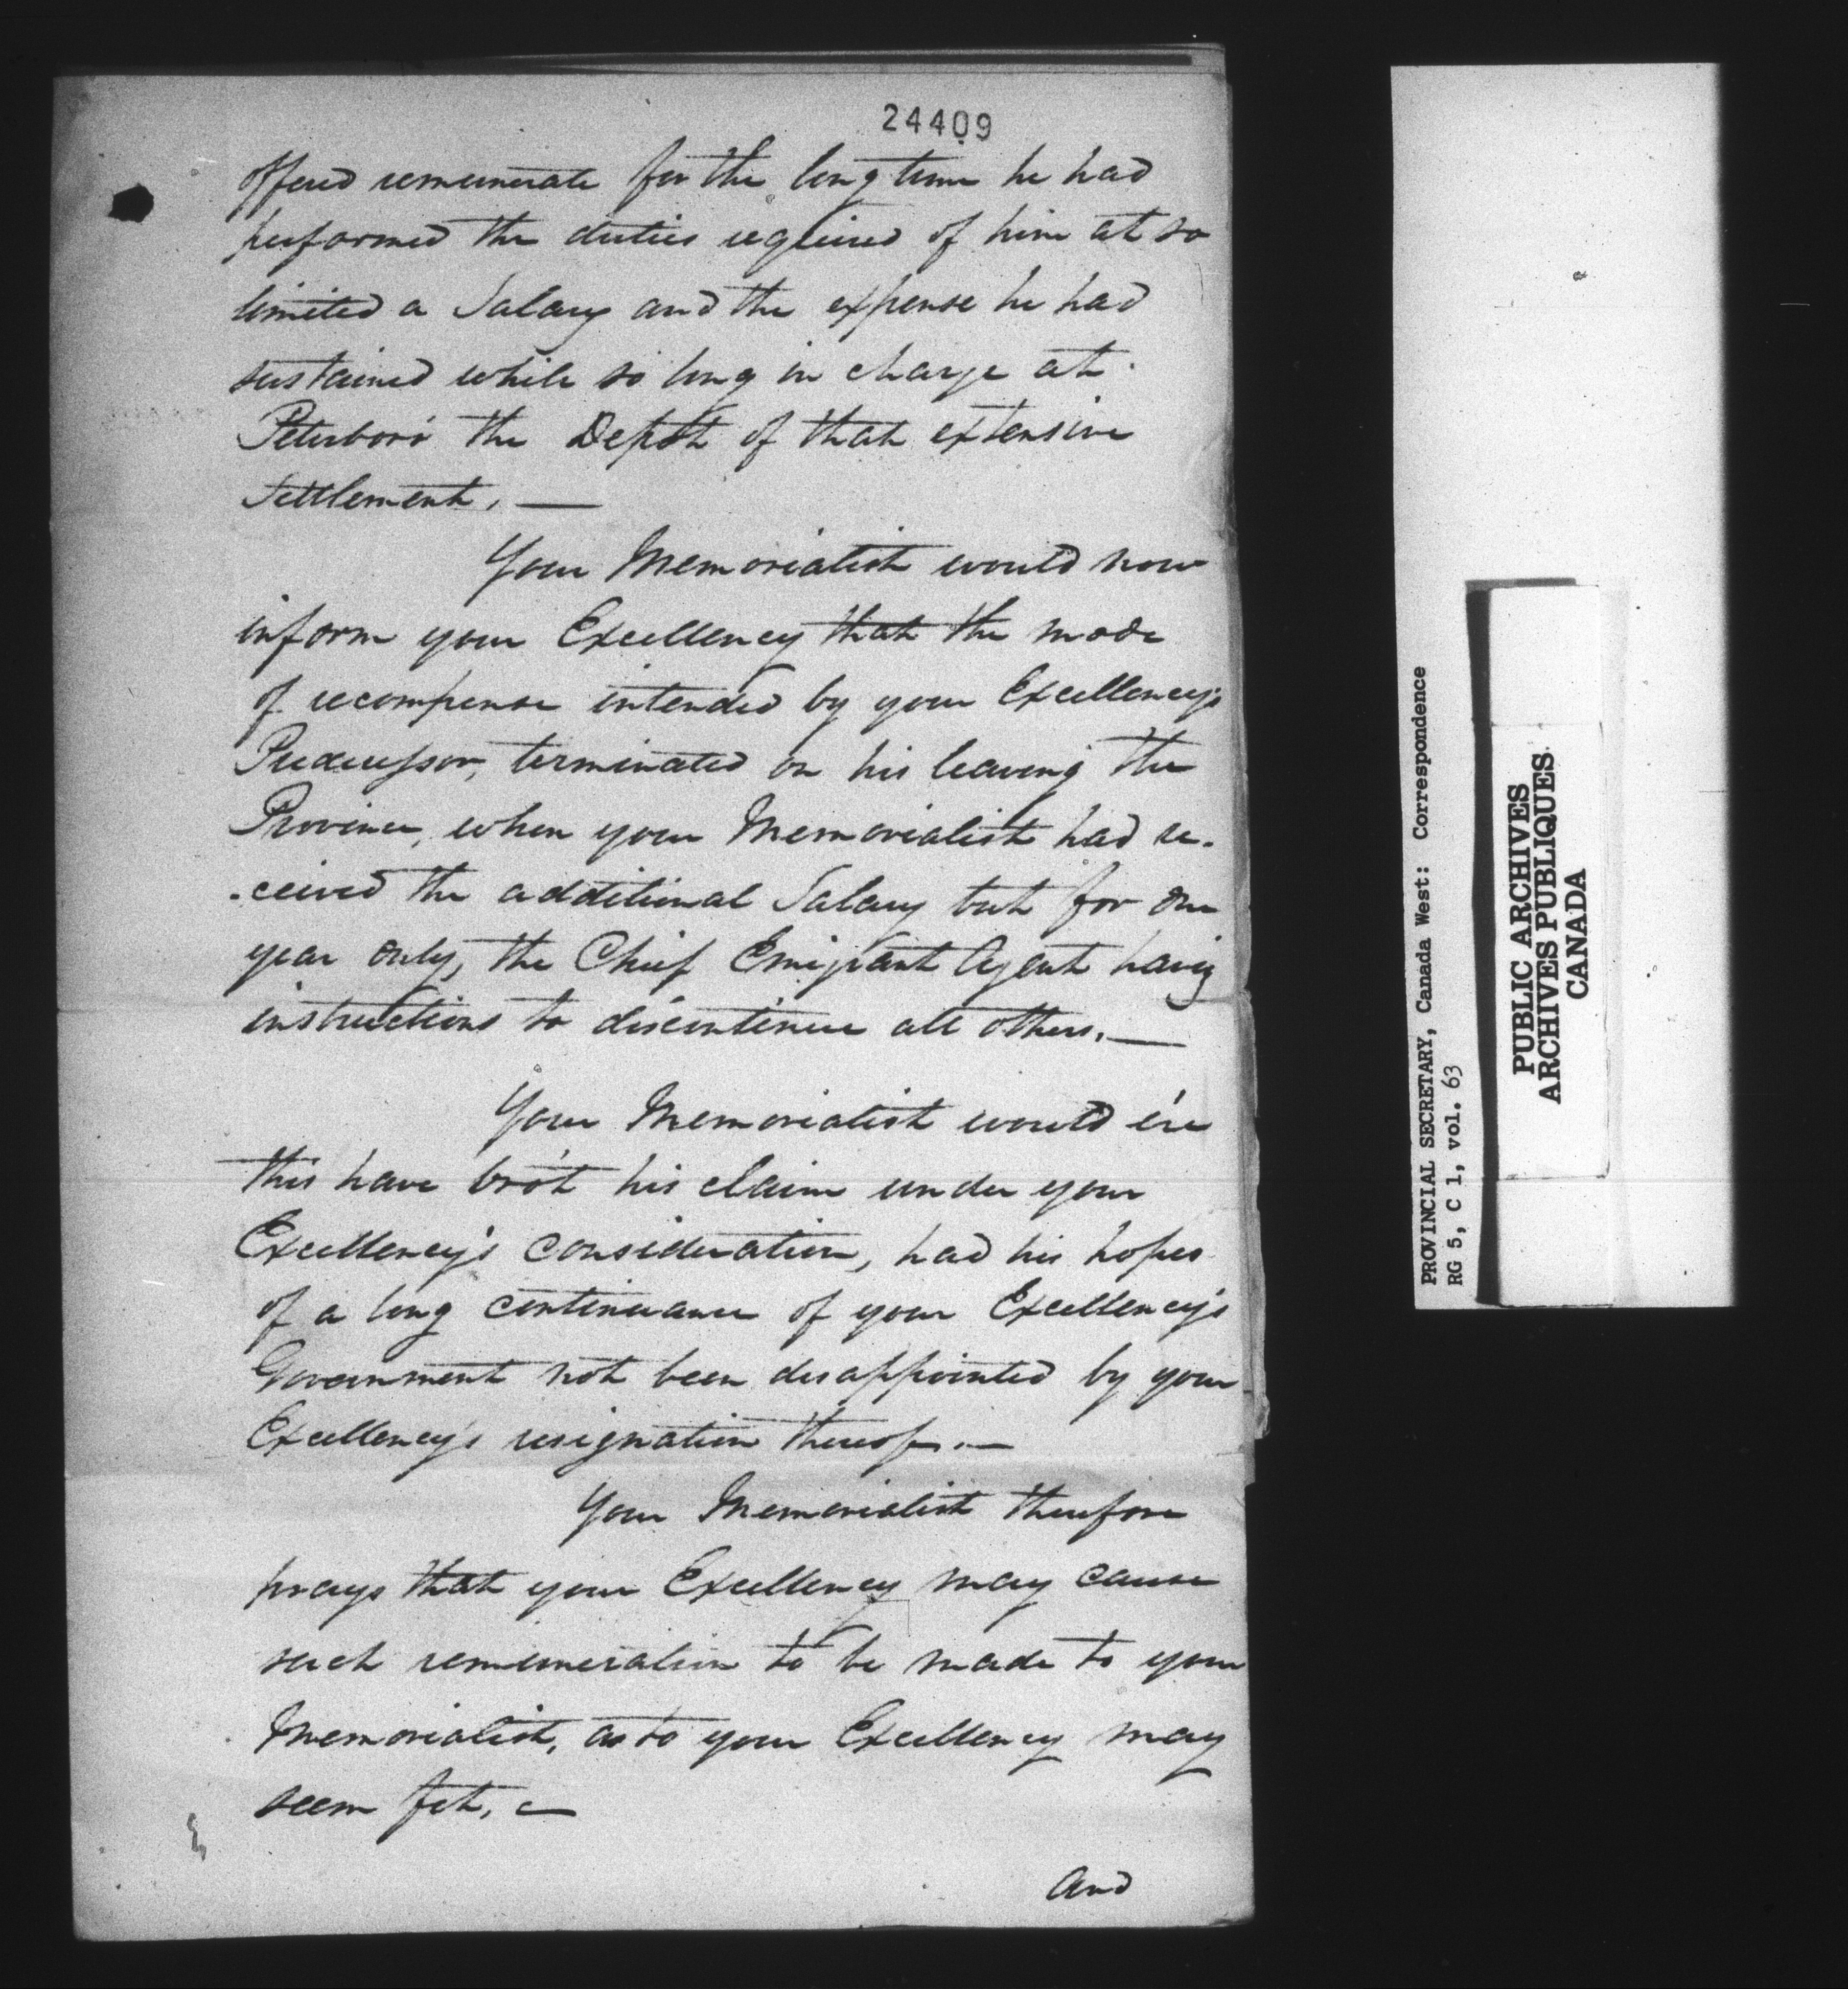 24409
offered remunerate for the long time he had
performed the duties required of him at so
limited a Salary and the expense he had
sustained while so long in charge at
Peterboro' the Depôt of that extensive
Settlement. —
Your Memorialist would now
inform your Excellency that the mode
of recompense intended by your Excellency's
Predecessor, terminated on his leaving the
Province, when your Memorialist had re-
-ceived the additional Salary but for one
year only, the Chief Emigrant Agent having
instructions to discontinue all others. —
Your Memorialist would e're
this have bro't his claim under your
Excellency's consideration, had his hopes
of a long continuance of your Excellency's
Government not been disappointed by your
Excellency's resignation thereof. —
Your Memorialist therefore
prays that your Excellency may cause
such remuneration to be made to your
Memorialist, as to your Excellency may
seem fit. —
And
PROVINCIAL SECRETARY, Canada West: Correspondence
RG 5, C 1, vol. 63
PUBLIC ARCHIVES
ARCHIVES PUBLIQUES
CANADA